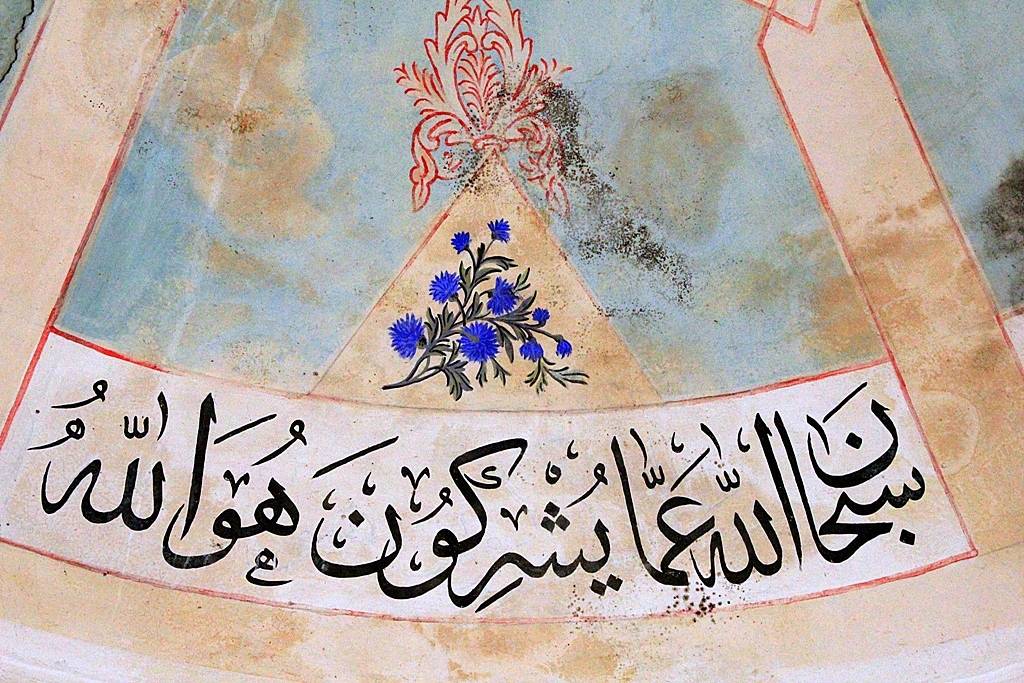 سبحان الله عَمَّا يُشْرِكُونَ هُوَ اللهُ